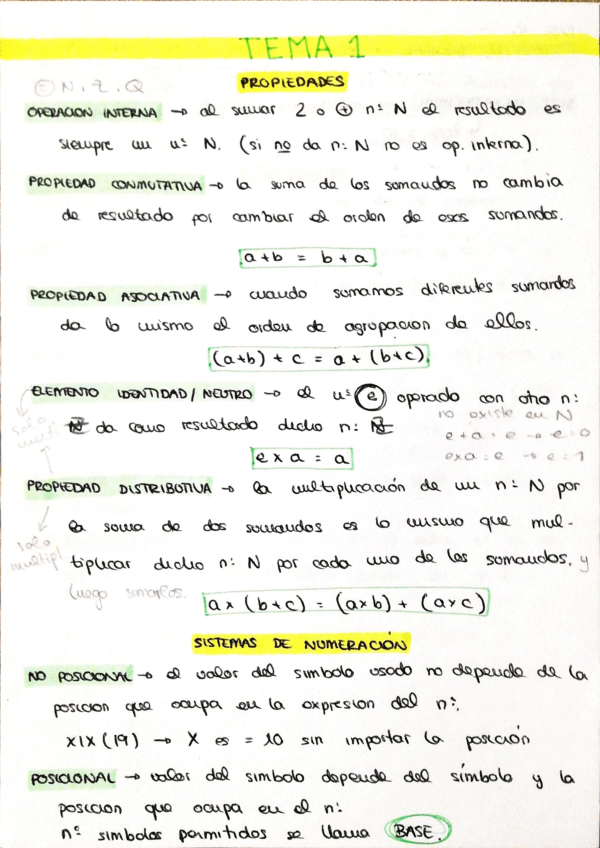 TEMA 1
N, Z, Q
PROPIEDADES
OPERACION INTERNA → al sumar 2 o + nº N el resultado es
siempre un nº N. (si no da nº N no es op. interna).
PROPIEDAD CONMUTATIVA → la suma de los sumandos no cambia
de resultado por cambiar el orden de esos sumandos.
a+b = b+a
PROPIEDAD ASOCIATIVA → cuando sumamos diferentes sumandos
da lo mismo el orden de agrupacion de ellos.
(a+b) + c = a + (b+c).
ELEMENTO IDENTIDAD/NEUTRO → el nº e operado con otro nº
da como resultado dicho nº
no existe en N
e + a = e → e = 0
e x a = e → e = 1
solo multi
e x a = a
PROPIEDAD DISTRIBUTIVA → la multiplicación de un nº N por
la soma de dos sumandos es lo mismo que mul-
tiplicar dicho nº N por cada uno de los somandos, y
luego sumarlos.
solo
multipl
a x (b+c) = (a x b) + (a x c)
SISTEMAS DE NUMERACIÓN
NO POSICIONAL → el valor del simbolo usado no depende de la
posicion que ocupa en la expresion del nº.
XIX (19) → X es = 10 sin importar la posición
POSICIONAL → valor del simbolo depende del símbolo y la
posicion que ocupa en el nº
nº simbolos permitidos se llama BASE.